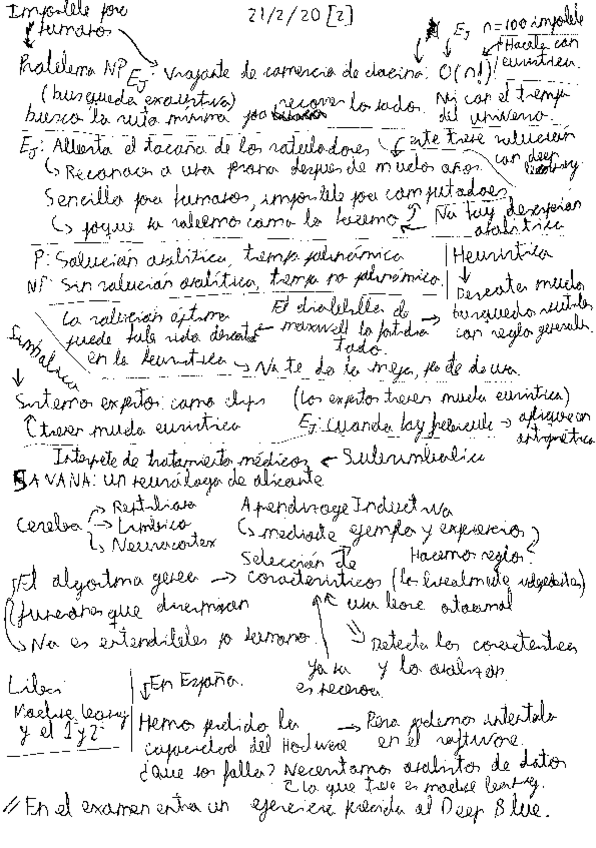 Imposible para humanos
21/2/20 [2]
Ej n=100 imposible
Hacerlo con eurística.
Problema NP Ej: Viajante de comercio de clocina: O(n!)
(busqueda exaustiva) recorrer los todos. Ni con el tiempo
busca la ruta minima para del universo.
Ej: Alberto el tacaña de los rateuladores este tiene solución
con deep learning
↳ Reconocer a una persona después de muchos años
Sencilla para humanos, imposible para computadores
↳ porque no sabemos como lo hacemos No hay descripción analítica
P: Solución analítica, tiempo polinómico
NP: Sin solución analítica, tiempo no polinómico.
Heurística
↓
Descartar muchas busquedas inutiles con reglas generales.
La solución óptima puede haber sido descartada en la heurística
El diablillo de maxwell lo podria todo.
→ No te da la mejor, puede dar una.
Simbólica
↓
Sistemas expertos: como clips (los expertos tienen mucha eurística)
↑ tienen mucha eurística Ej: cuando hay → apliquese antipirético
Interprete de tratamientos médicos ← Subsimbolico
SAVANA: un neurologo de alicante
Cerebro
→ Reptiliano
→ Limbico
↳ Neurocortex
Aprendizaje Inductivo
↳ mediante ejemplos y experiencias
Hacemos reglas?
Selección de
El algoritmo genera → características (las linealmente)
funciones que discriminan
una base
↳ No es entendibles por humano.
Detecta las características y las analizan
Ya no es necesario
Libro:
Machine learning y el 1 y 2
En España.
Hemos perdido la capacidad del Hardware → Pero podemos intentarlo en el software.
¿Que nos falla? Necesitamos analistos de datos
↳ lo que tiene es machine learning.
// En el examen entra un ejercicio parecido al Deep Blue.